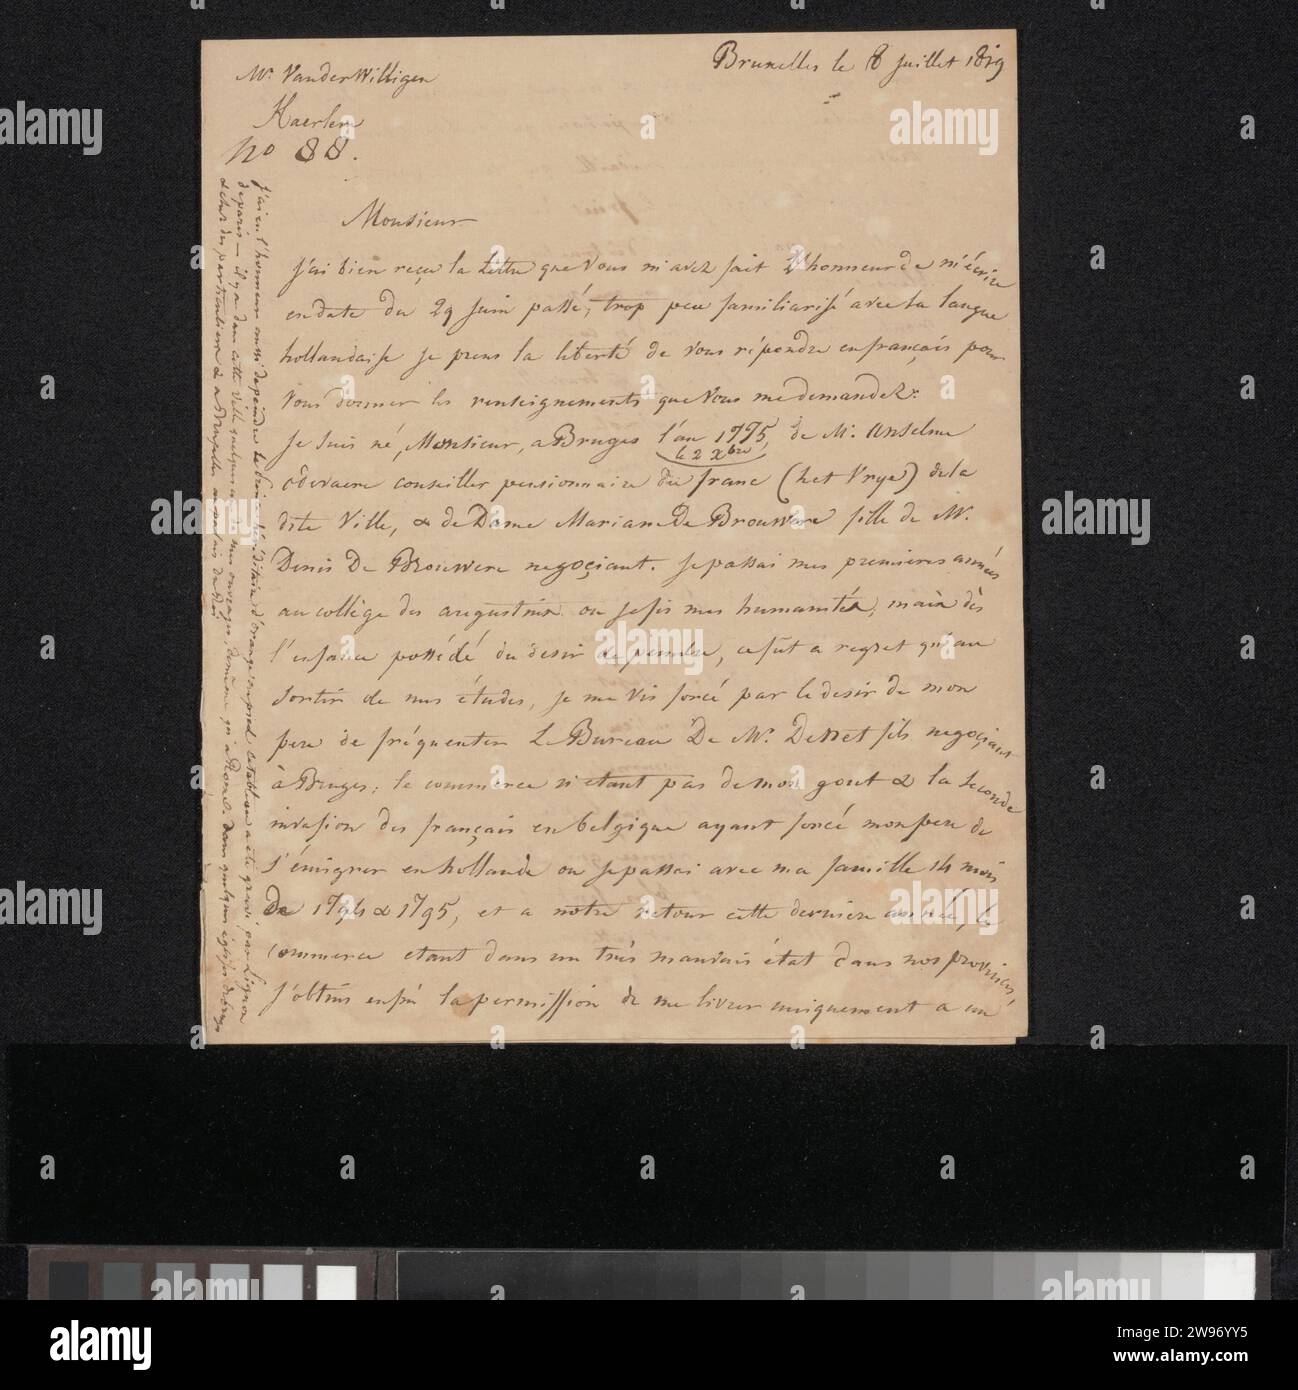 Bruxelles le 8 Juillet 1819
Mr. Vander Willigen
Haerlem
No 88.
Monsieur
J'ai bien reçu la Lettre que Vous m'avez fait l'honneur de m'écrire
en date du 29 Juin passé, trop peu familiarisé avec la langue
hollandaise je prens la liberté de vous répondre en français pour
Vous donner les renseignements que Vous me demandez.
Je suis né, Monsieur, a Bruges l'an 1775, de Mr. Anselme
le 2 Xbre
odevaere conseiller pensionnaire du franc (het Vrye) de la
dite Ville, & de Dame Mariane De Brouwere fille de Mr.
Denis De Brouwere negoçiant. Je passai mes premieres années
au collège des augustins ou je fis mes humanités, mais dès
l'enfance possédé du desir de peindre, ce fut a regret qu'au
sortir de mes études, je me vis forcé par le desir de mon
pere de fréquenter Le Bureau De Mr. Denet fils negoçiant
à Bruges; le commerce n'etant pas de mon gout & la seconde
invasion des français en belgique ayant forcé mon pere de
s'émigrer en hollande ou je passai avec ma famille 14 mois
De 1794 & 1795, et a notre retour cette derniere année, le
commerce etant dans un très mauvais état dans nos provinces,
J'obtins enfin la permission de me livrer uniquement a un
J'ai eu l'honneur aussi de peindre le Prince héréditaire d'orange en pied le tableau a eté gravé par Lignon
de paris — il y a dans cette ville quelques uns de mes ouvrages, de même qu'à Rome. dans quelques églises de bruges
& chez des particuliers & a Bruxelles au palais du Roi
alamy
Image ID: 2W96YY5
www.alamy.com